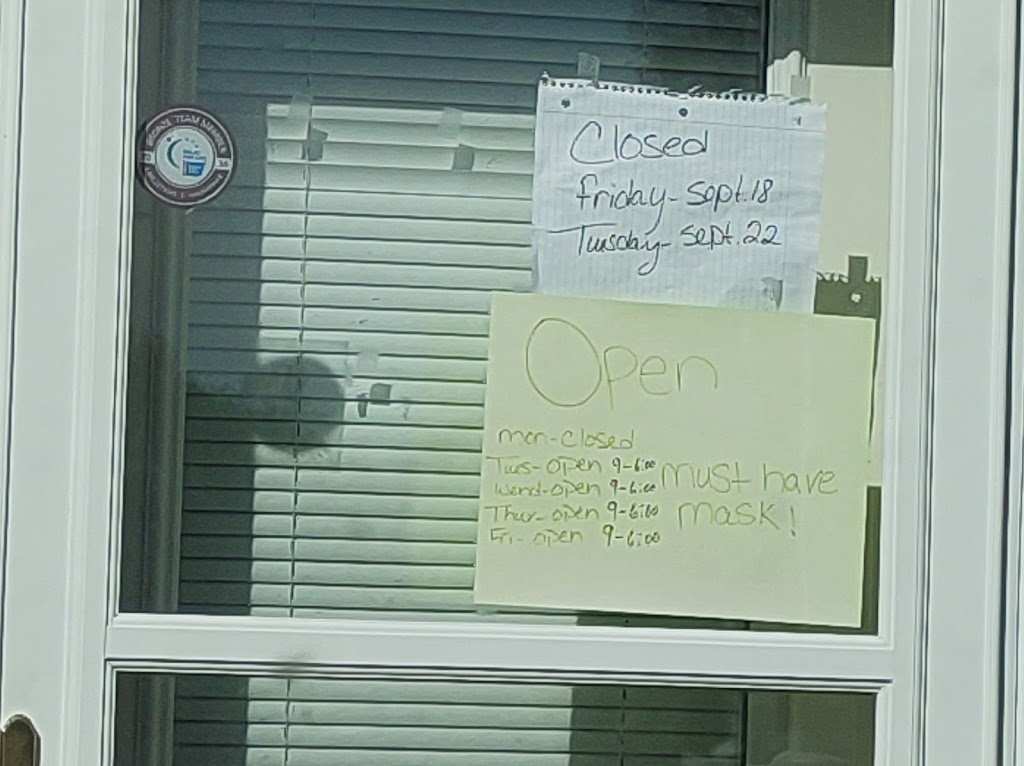 TEAM MEMBER
Closed
friday- Sept.18
Tuesday- Sept.22
Open
mon-closed
Tues- open 9-6:00
Wend-open 9-6:00
Thur- open 9-6:00
Fri- open 9-6:00
must have
mask!